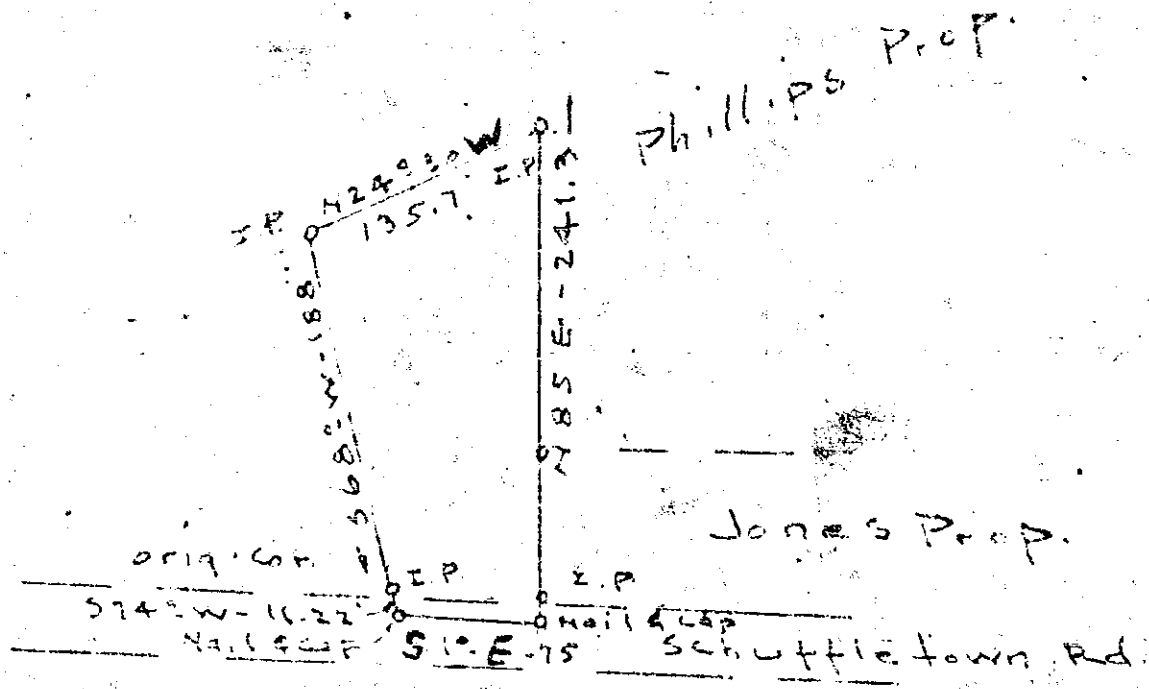 Phillips Prop.
I.P.
N24°30 W
135.7
I.P.
N85E-241.3
S68°W-188
Jones Prop.
orig. cor.
I.P.
I.P.
S74°W-16.22
Nail & Cap
Nail & Cap
S1°E-75
Schuffletown Rd.